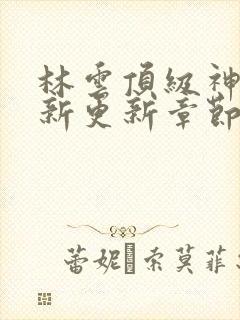 林雲頂級神
新更新章節
蕾妮·索莫菲